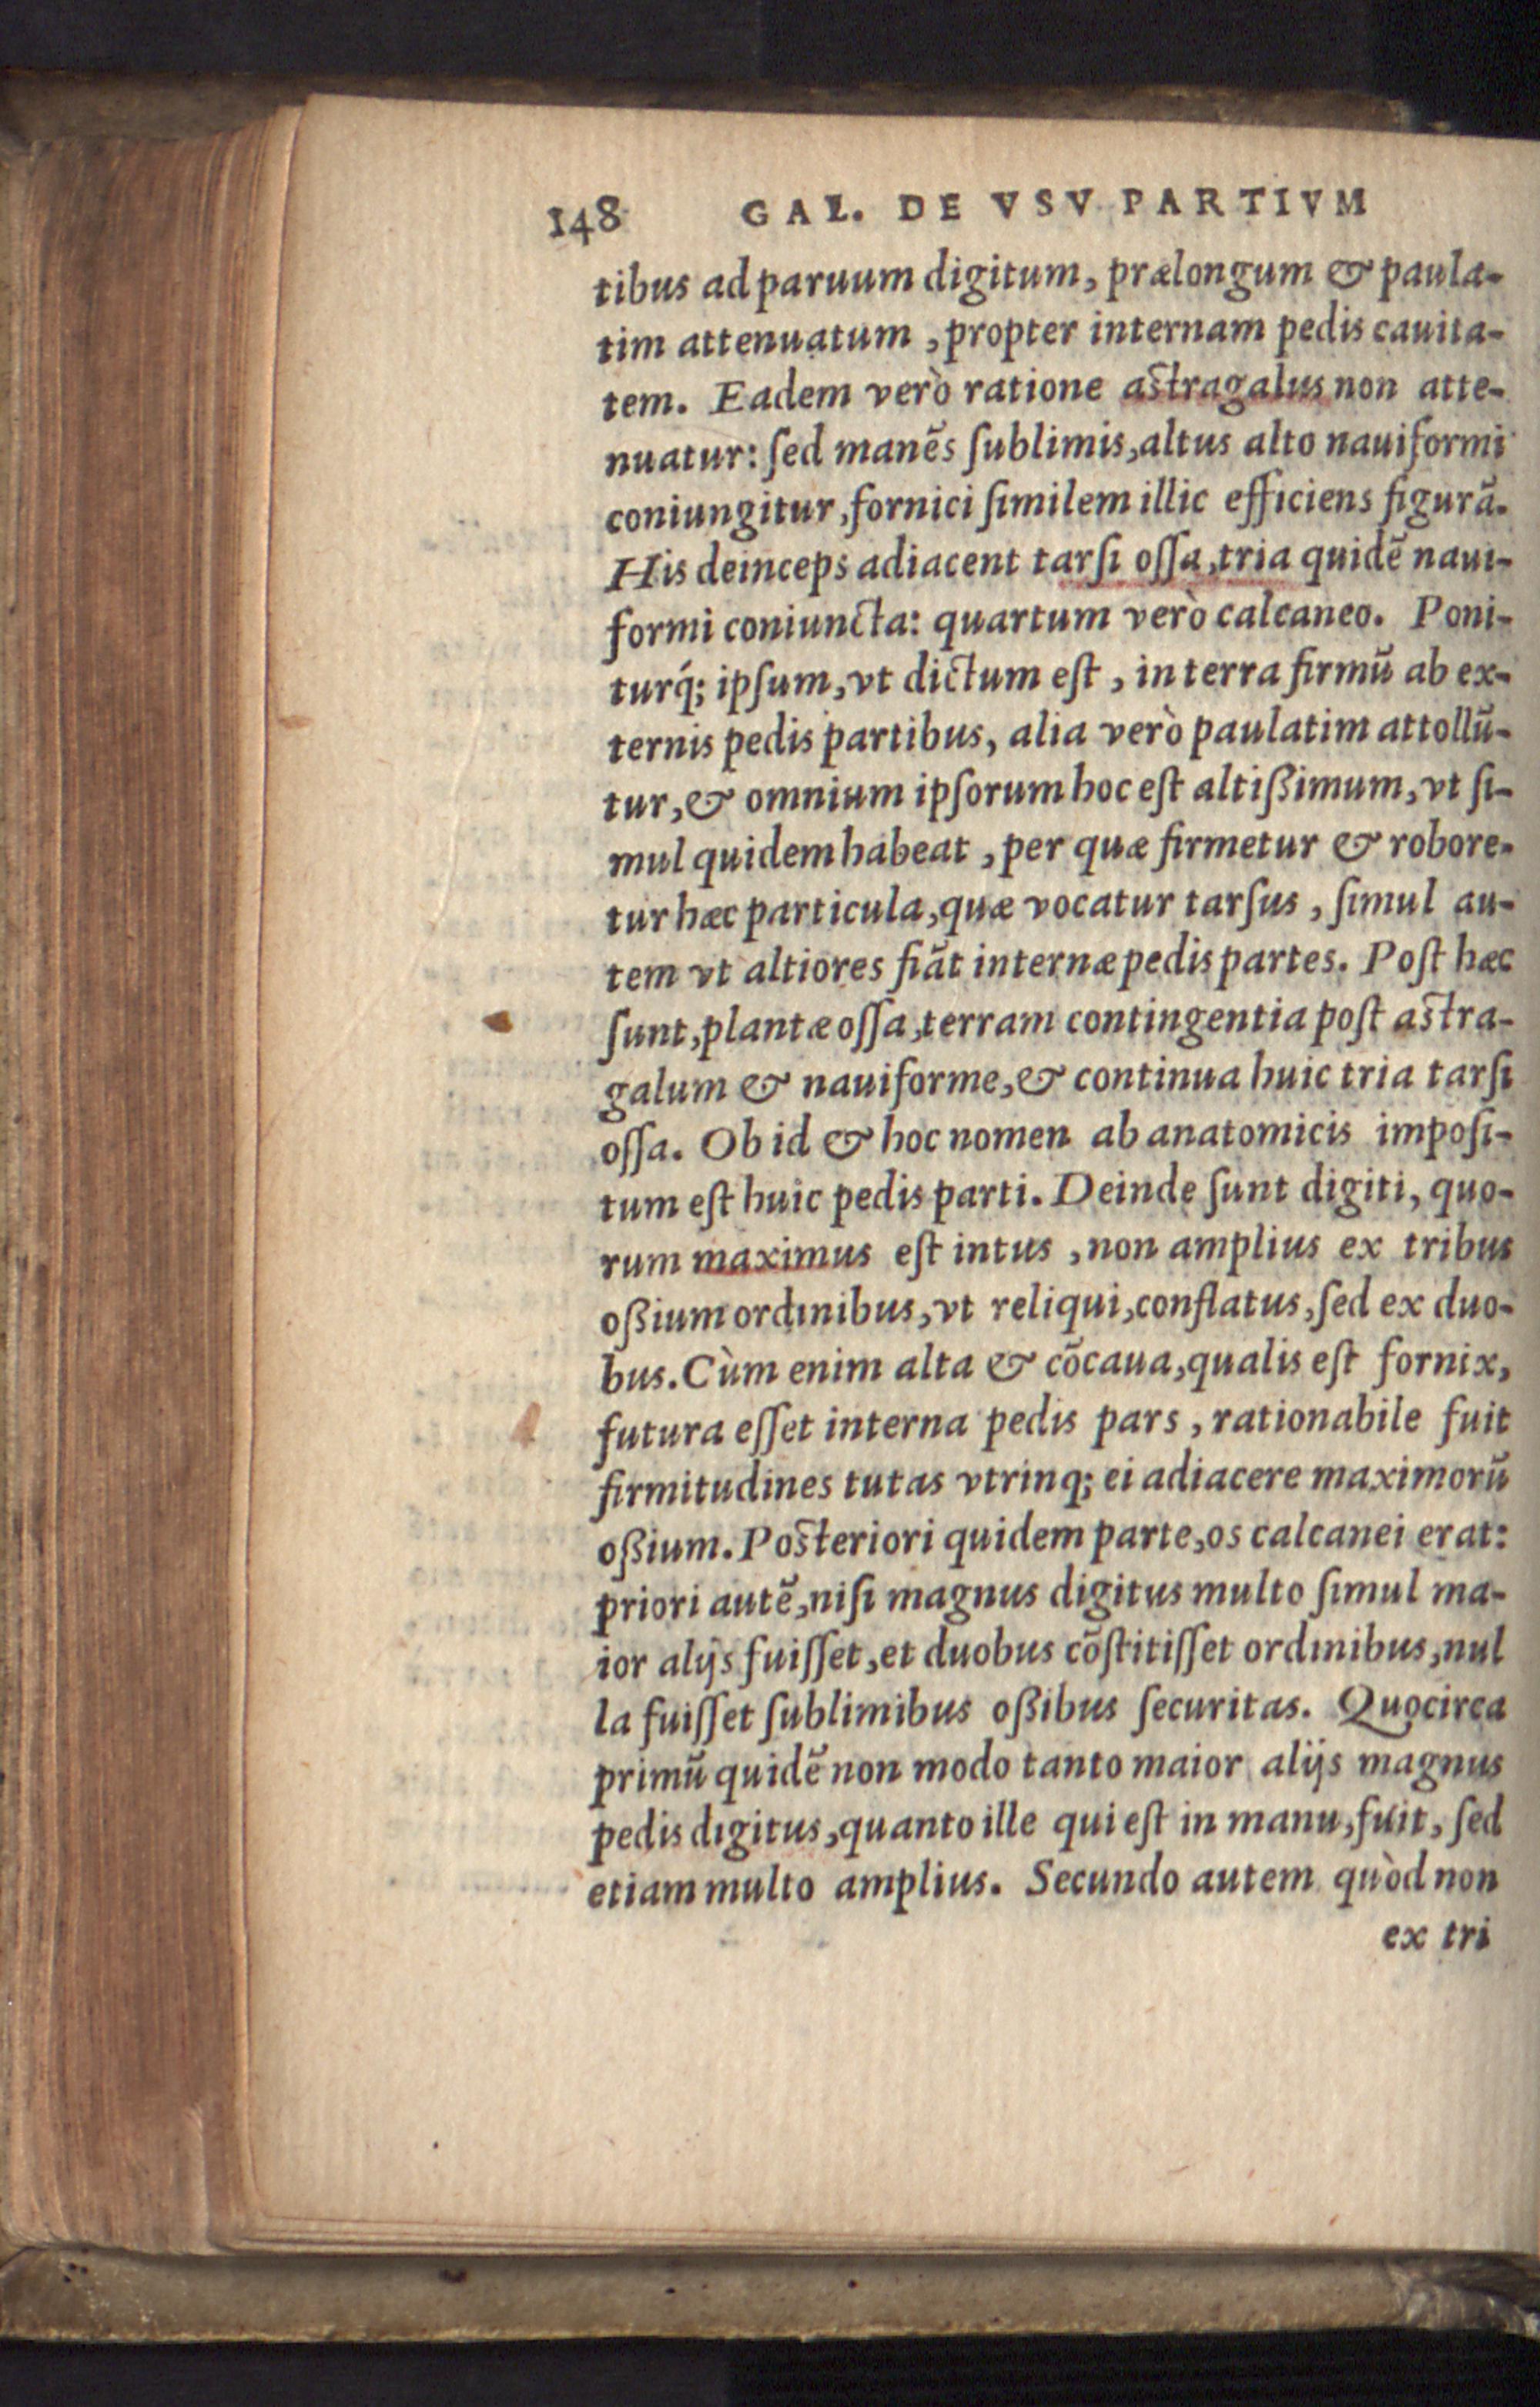 148 GAL. DE VSV PARTIVM
tibus ad paruum digitum, prælongum & paula-
tim attenuatum, propter internam pedis cauita-
tem. Eadem verò ratione astragalus non atte-
nuatur: ſed manẽs ſublimis, altus alto nauiformi
coniungitur, fornici ſimilem illic efficiens figurã.
His deinceps adiacent tarſi oſſa, tria quidẽ naui-
formi coniuncta: quartum verò calcaneo. Poni-
turq́; ipſum, vt dictum eſt, in terra firmũ ab ex-
ternis pedis partibus, alia verò paulatim attollũ-
tur, & omnium ipſorum hoc eſt altißimum, vt ſi-
mul quidem habeat, per quæ firmetur & robore-
tur hæc particula, quæ vocatur tarſus, ſimul au-
tem vt altiores fiãt internæ pedis partes. Poſt hæc
ſunt, plantæ oſſa, terram contingentia poſt astra-
galum & nauiforme, & continua huic tria tarſi
oſſa. Ob id & hoc nomen ab anatomicis impoſi-
tum eſt huic pedis parti. Deinde ſunt digiti, quo-
rum maximus eſt intus, non amplius ex tribus
oßium ordinibus, vt reliqui, conflatus, ſed ex duo-
bus. Cùm enim alta & cõcaua, qualis eſt fornix,
futura eſſet interna pedis pars, rationabile fuit
firmitudines tutas vtrinq; ei adiacere maximorũ
oßium. Posteriori quidem parte, os calcanei erat:
priori autẽ, niſi magnus digitus multo ſimul ma-
ior alijs fuiſſet, et duobus cõſtitiſſet ordinibus, nul
la fuiſſet ſublimibus oßibus ſecuritas. Quocirca
primũ quidẽ non modo tanto maior alijs magnus
pedis digitus, quanto ille qui eſt in manu, fuit, ſed
etiam multo amplius. Secundo autem quòd non
ex tri